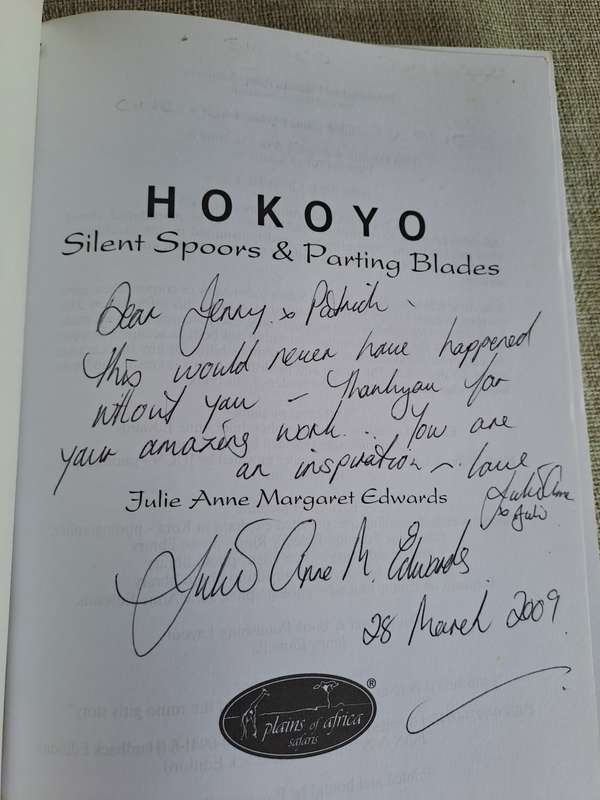 HOKOYO
Silent Spoors & Parting Blades
Dear Jenny & Patrick
This would never have happened
without you - Thankyou for
your amazing work.. You are
an inspiration ~ love
Julie Anne
Julie Anne Margaret Edwards
Julie Anne M. Edwards
28 March 2009
plains of africa
safaris
®